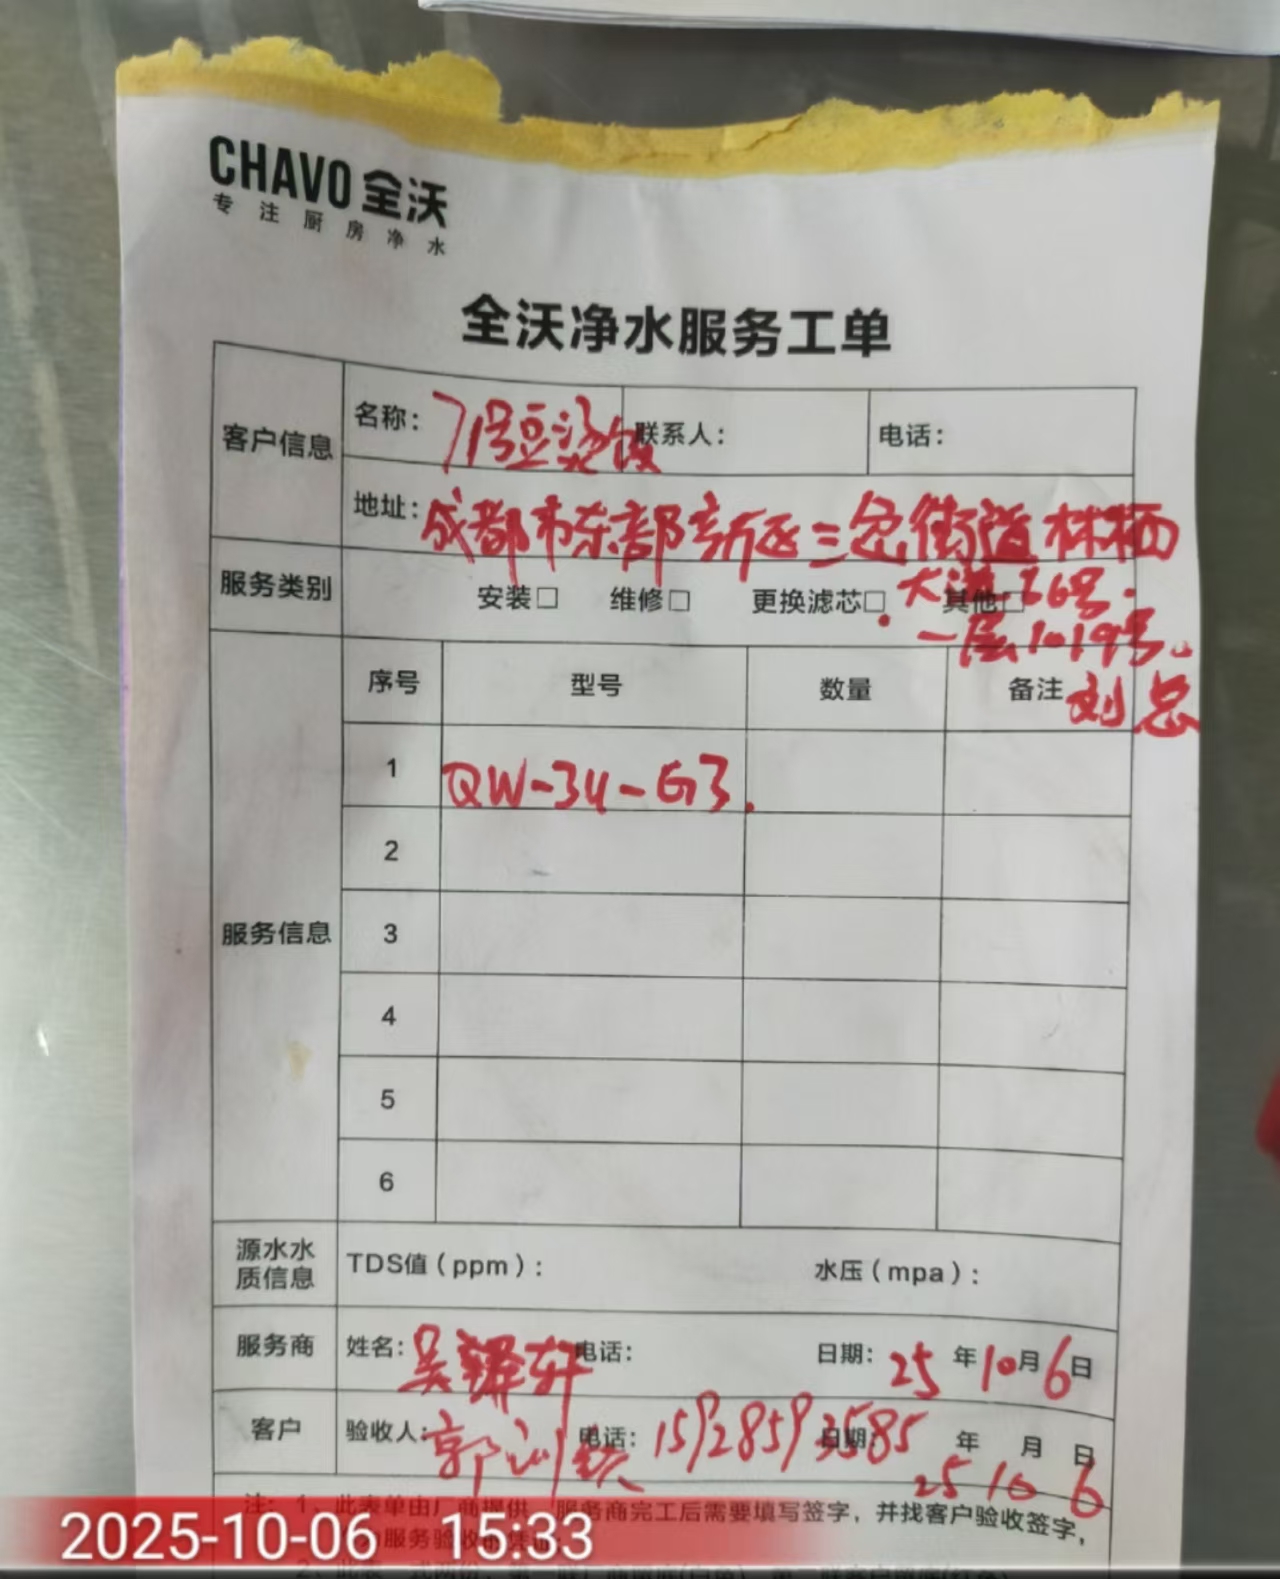 CHAVO 全沃
专注厨房净水
全沃净水服务工单
客户信息
名称：71号豆汤饭 联系人： 电话：
地址：成都市东部新区三岔街道林栖
大道 36号.
一层1019号。
刘总
服务类别 安装□ 维修□ 更换滤芯□ 其他□
服务信息
序号 型号 数量 备注
1 QW-34-G3.
2
3
4
5
6
源水水质信息 TDS值（ppm）： 水压（mpa）：
服务商 姓名：吴 轩 电话： 日期：25年10月6日
客户 验收人：郭 电话：15928593585 日期： 年 月 日
25 10 6
注：1、此表单由厂商提供，服务商完工后需要填写签字，并找客户验收签字，
服务验收的凭证
2025-10-06 15:33